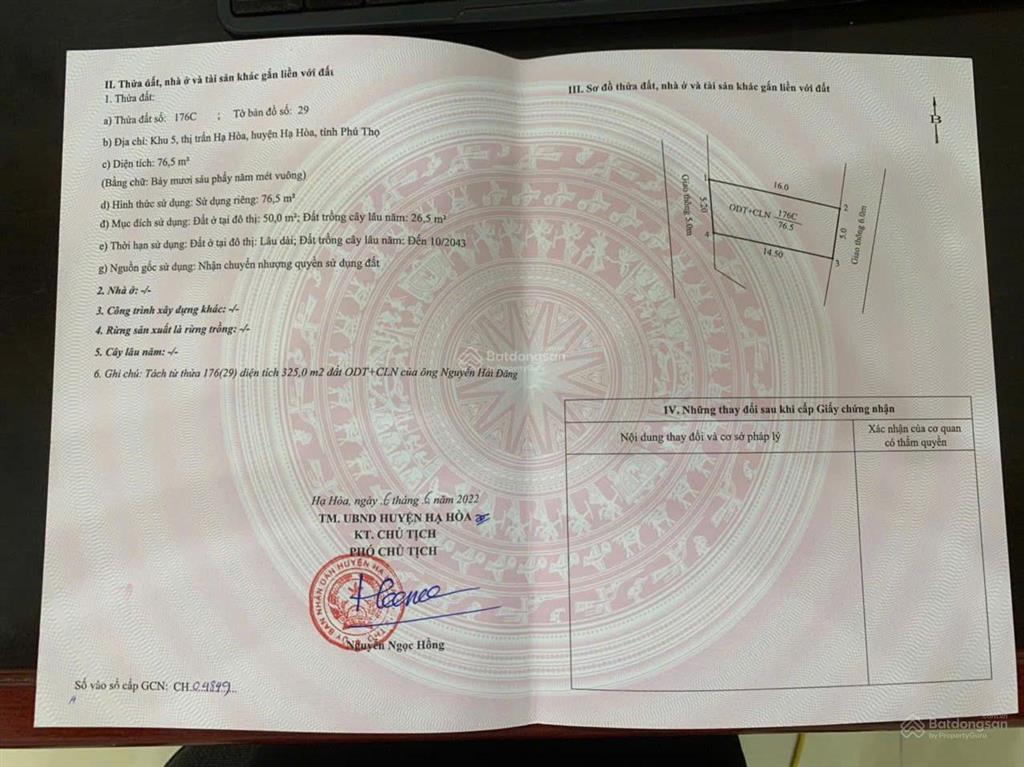 II. Thửa đất, nhà ở và tài sản khác gắn liền với đất
1. Thửa đất:
a) Thửa đất số: 176C ; Tờ bản đồ số: 29
b) Địa chỉ: Khu 5, thị trấn Hạ Hòa, huyện Hạ Hòa, tỉnh Phú Thọ
c) Diện tích: 76,5 m²
(Bằng chữ: Bảy mươi sáu phẩy năm mét vuông)
d) Hình thức sử dụng: Sử dụng riêng: 76,5 m²
đ) Mục đích sử dụng: Đất ở tại đô thị: 50,0 m²; Đất trồng cây lâu năm: 26,5 m²
e) Thời hạn sử dụng: Đất ở tại đô thị: Lâu dài; Đất trồng cây lâu năm: Đến 10/2043
g) Nguồn gốc sử dụng: Nhận chuyển nhượng quyền sử dụng đất
2. Nhà ở: -/-
3. Công trình xây dựng khác: -/-
4. Rừng sản xuất là rừng trồng: -/-
5. Cây lâu năm: -/-
6. Ghi chú: Tách từ thửa 176(29) diện tích 325,0 m2 đất ODT+CLN của ông Nguyễn Hải Đăng
Hạ Hòa, ngày 6 tháng 6 năm 2022
TM. UBND HUYỆN HẠ HÒA
KT. CHỦ TỊCH
PHÓ CHỦ TỊCH
Nguyễn Ngọc Hồng
Số vào sổ cấp GCN: CH 04849
III. Sơ đồ thửa đất, nhà ở và tài sản khác gắn liền với đất
B
Giao thông 5.0m
1
16.0
2
5.20
ODT+CLN 176C
76.5
5.0
Giao thông 6.0m
4
14.50
3
IV. Những thay đổi sau khi cấp Giấy chứng nhận
Nội dung thay đổi và cơ sở pháp lý
Xác nhận của cơ quan
có thẩm quyền
Batdongsan
Batdongsan
by PropertyGuru